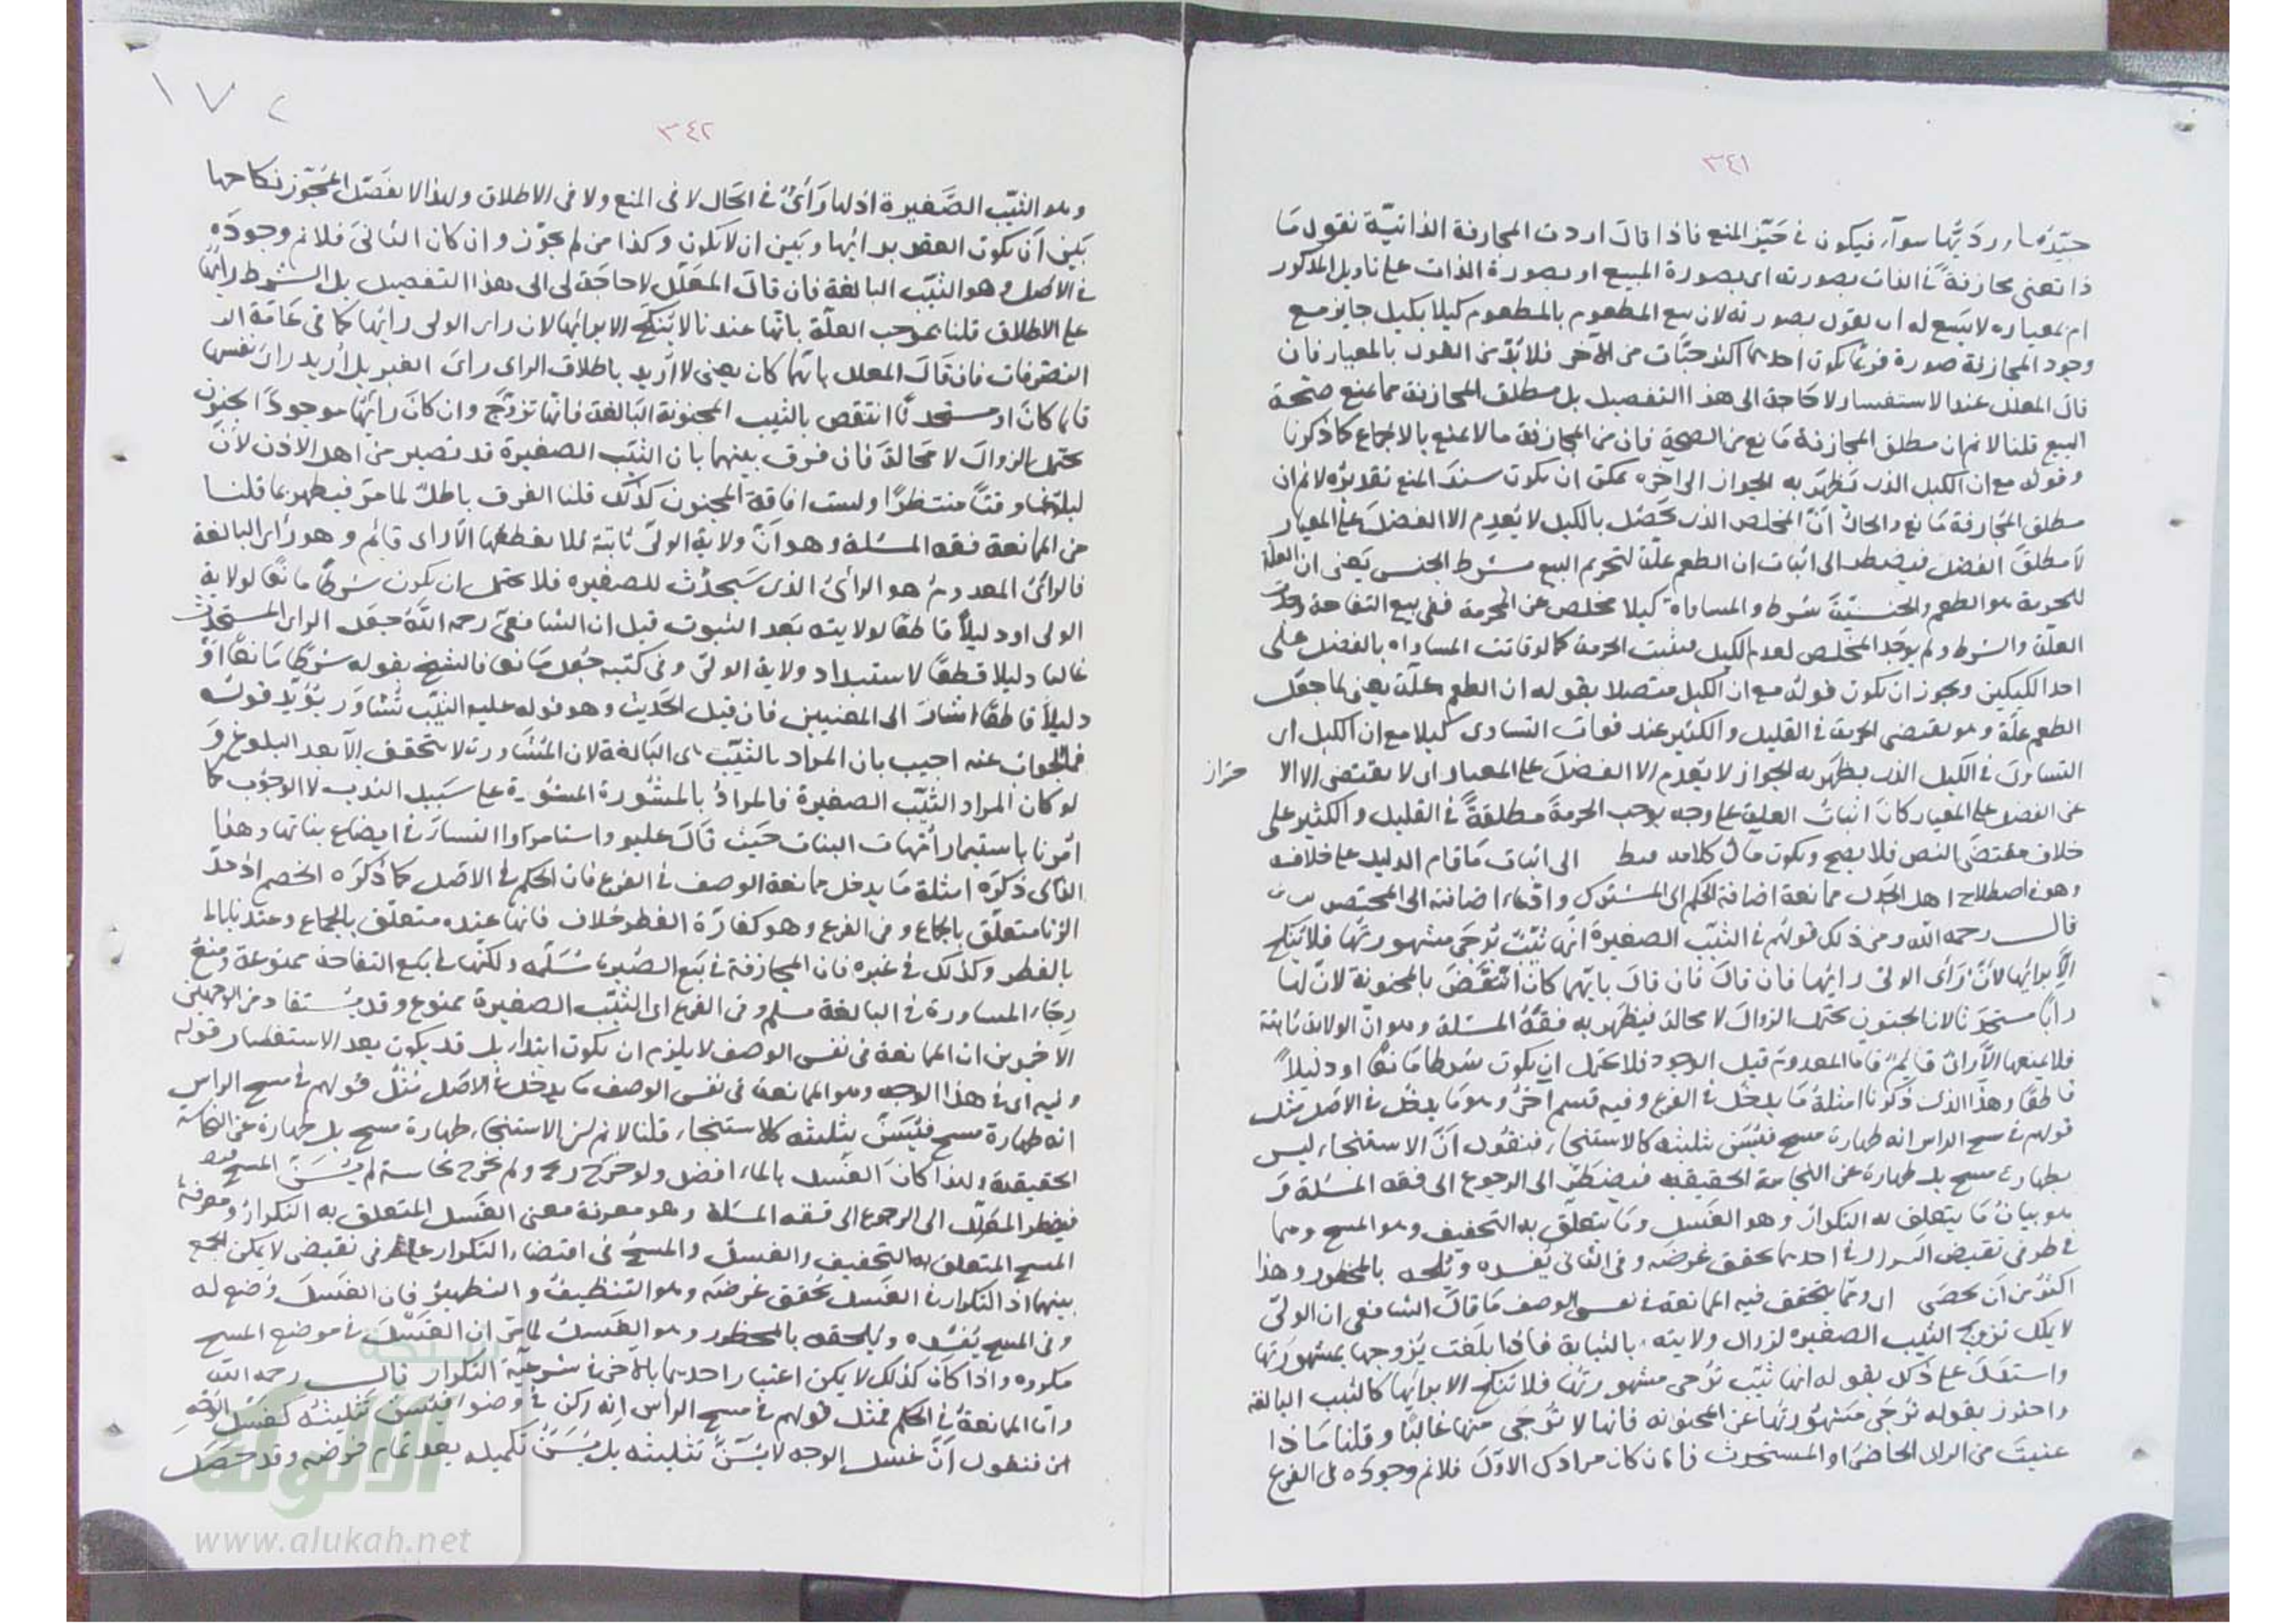 ٣٤١
جيّدها ورديّها سوآء فيكون في حَيّز المنع فاذا قال اردت المجازفة الذاتيّة نقول مَا
ذا تعنى مجازفةً في الذات بصورته اى بصورة المبيع او بصورة الذات على تاويل المذكور
ام بمعياره لا يتسع له ان يقول بصورته لان بيع المطعوم بالمطعوم كيلا بكيل جايز مع
وجود المجازفة صورة فربّما يكون احديهما اكثر حبّات من الآخر فلا بُدّ من القول بالمعيار فان
قال المعلل عند الاستفسار لا حَاجة الى هذا التفصيل بل مطلق المجازفة مما يمنع صحّة
البيع قلنا لا نم ان مطلق المجازفة مَانع من الصحة فان من المجازفة ما لا يمنع بالاجماع كما ذكرنا
وقوله مع ان الكيل الذى يَظهَر به الجواز الى اخره يمكن ان يكون سندَ المنع تقديرُه لا نم ان
مطلق المجازفة مَانع والحال انّ المخلص الذى يحصُل بالكيل لا يُعدِم الا الفضلَ على المعيار
لا مطلقَ الفضل فيضطر الى اثبات ان الطعم علّة لتحريم البيع بشرط الجنس يَعنى ان العلّة
للحرمة هو الطعم والجنسيّة شرط والمساواة كيلا مخلص عن الحرمة ففى بيع التفاحة وُجدَت
العلّة والشرط ولم يوجَد المخلص لعدم الكيل فيثبت الحرمة كما لو فاتت المساواه بالفضل على
احد الكيلين ويجوز ان يكون قولُه مع ان الكيل متصلا بقوله ان الطعم علّة يعنى لما جعَل
الطعم علّة وهو يقتضى الحرمة في القليل والكثير عند فوات التساوى كيلا مع ان الكيل اى
التساوىَ في الكيل الذى يظهَر به الجواز لا يعدِم الا الفضلَ على المعيار اى لا يقتضى الا الا حتراز
عن الفضل على المعيار كانَ اثباتُ العلية على وجه يوجب الحرمةَ مطلقةً في القليل والكثير على
خلاف مقتضَى النص فلا يصح ويكون مآل كلامه الى اثبات مَا قام الدليل على خلافه
وهو في اصطلاح اهل الجدل ممانعة اضافة الحكم الى المشترك وادّعاء اضافته الى المختص
قال رحمه الله ومن ذلك قولهم في الثيّب الصغيرة انّها ثيّبٌ تُرجَى مشهورتها فلا يُنكح
الّا برائها لانّ رَأى الولى رايُها فان قال فان قال بايّهما كان انتقَضَ بالمجنونة لانّ لها
رأيًا مستحدثا لان الجنون يحتمل الزوالَ لا محالة فيظهَر به فقهُ المسئلة وهو انّ الولاية ثابتة
فلا يمنعها الّا راىٌ قايمٌ فاما المعدوم قبل الوجود فلا يحتمل ان يكون شرطا مَانعًا او دليلاً
قاطعًا وهذا الذى ذكرنا امثلةُ مَا يدخُل في الفرع وفيه قسم آخَرُ وهو مَا يدخُل في الاصل مثل
قولهم في مسح الراس انه طهارة مسح فيُسَن تثليثه كالاستنجاء فنقُول انّ الاستنجاء ليس
بطهارة مسح بل طهارة عن النجاسة الحقيقيه فيضطَرّ الى الرجوع الى فقه المسئلة وَ
هو بيانُ مَا يتعلق به التكرار وهو الغَسل ومَا يتعلّق به التخفيف وهو المسح وهما
في طرفى نقيض التكرار في احدهما يحقق غرضَه وفى الثانى يُفسِده ويُلحقه بالمحظور وهذا
اكثَر من اَن يحصَى اى وممّا يتحقق فيه الممانعة في نفس الوصف مَا قالَ الشافعى ان الولىّ
لا يملك تزويج الثيب الصغيره لزوال ولايته بالثيابة فاذا بلَغت يُزوجها بمشهورتها
واستدَلّ على ذلك بقوله انها ثيّب تُرجى مشهورتها فلا تنكح الا برائها كالثيب البالغة
واحترز بقوله تُرجَى مَشهورتُها عن المجنونه فانها لا تُرجَى منها غالبًا وقلنا مَا ذا
عنيتَ من الراى الحاضرَ او المستحدث فان كان مرادك الاوّلَ فلا نم وجودَه فى الفرع
١٧٢
٣٤٢
وهو الثيّب الصَّغيرة اذ لها رَأىٌ في الحَال لا فى المنع ولا فى الاطلاق ولهذا لا يفَصّل المجَوّز نكاحها
بَينَ اَن يكون العقد برائها وبَين ان لا يكون وكذا من لم يجوّز وان كان الثانىَ فلا نم وجودَه
في الاصل وهو الثيّب البالغة فان قال المعَلّل لا حاجَة لى الى هذا التفصيل بل الشرط رايُها
على الاطلاق قلنا بموجب العلّة بانّها عندنا لا يُنكَح الا برائها لان راى الولى رايُها كما فى عَامّة الـ
التصرفات فان قالَ المعلل بايّهما كان يعنى لا اُريد باطلاق الراى راىَ الغير بل اُريد راىَ نفسها
قايما كانَ او مستحدثًا انتقض بالثيب المجنونة البَالغة فانها تزوّج وان كانَ رايُها موجودًا الجنون
يحتمل الزوالَ لا محالةَ فان فرق بينهما بان الثيّب الصغيرة قد تصير من اهل الاذن لانّ
لبلوغها وقتًا منتظرًا وليست افاقة المجنون كذلك قلنا الفرق باطلٌ لما مرّ فيظهر بما قلنا
من الممانعة فقه المسئلة وهو انّ ولاية الولىّ ثابتة فلا يقطعُها الّا راى قايم وهو رأى البالغة
فالرأىُ المعدوم هو الرأىُ الذى سَيحدُث للصغيره فلا يحتمل ان يكون شرطًا مانعًا لولاية
الولى او دليلاً قاطعًا لولايته بَعد الثبوت قيل ان الشافعىّ رحمه اللّه جعَل الراى المستحدَث
غالبا دليلا قطعًا لاستبداد ولاية الولىّ وفى كتبه جُعل مَانعا فالشيخ بقوله شرطًا مَانعًا اوْ
دليلاً قاطعًا اشارَ الى المعنيين فان قيل الحَديث وهو قوله عليه الثيّب تُشاوَر يؤيّد قولَه
فما الجواب عنه اجيب بان المراد بالثيّب هى البَالغة لان المشاورة لا يتحقق الّا بعد البلوغ وَ
لو كان المراد الثيّب الصغيرة فالمرادُ بالمشورة المشورة على سَبيل الندب لا الوجوب كما
اُمرنا باستيمار اُمّهات البنات حَيث قالَ عليه واستامروا النسآء في ابضاع بناتها وهذا
الذى ذكرَه امثلة مَا يدخل ممانعة الوصف في الفرع فان الحكم في الاصل كما ذكرَه الخصم اذ حدّ
الزنا متعلّق بالجماع وفى الفرع وهو كفارَة الفطر خلاف فانها عنده متعلّق بالجماع وعندنا
بالفطر وكذلك في غيره فان المجازفة في بَيع الصُبرة مُسَلّمه ولكنّها في بَيع التفاحة ممنوعة ومنعُ
رجَاء المشاورة في البالغة مسلّم وفى الفرع اى الثيّب الصغيرة ممنوع وقد يُستفاد من الوجهين
الآخرين ان الممانعة فى نفس الوصف لا يلزم ان يكون ابتداء بل قد يكون بعد الاستفسار قوله
وفيه اى في هذا الوجه وهو الممانعة فى نفس الوصف مَا يدخل في الاصل مثلُ قولهم في مسح الراس
انه طهارة مسح فيُسَنّ تثليثه كالاستنجاء قلنا لا نم ان الاستنجاء طهارة مسح بل طهارة عن النجاسة
الحقيقية ولهذا كانَ الغَسل بالماء افضل ولو خرَج ريح ولم يخرج نجاسة لم يُسَنّ المسح
فيضطر المعَلّل الى الرجوع الى فقه المسئلة وهو معرفة معنى الغَسل المتعلق به التكرارُ ومعرفة
المسح المتعلق به التخفيف والغسل والمسحُ فى اقتضاء التكرار على طرفى نقيض لا يمكن الجمع
بينهما اذ التكرار في الغَسل يُحقق غرضَه وهو التنظيفُ والتطهيرُ فان الغَسلَ وُضع له
وفى المسح يُفسده ويُلحقه بالمحظور وهو الغَسلُ لما مرّ ان الغَسْلَ في موضع المسح
مكروه واذا كان كذلك لا يمكن اعتبار احديهما بالآخر في شرعيّة التكرار قال رحمه اللّه
وامّا الممانعةُ في الحكم فمثل قولهم في مسح الرأس انه ركن في وضوء فيُسنّ تثليثُه كغَسل الوَجْهِ
فنقول اَنّ غسل الوجه لا يُسَنُّ تثليثه بل يُسَنُّ تكميله بعد تمام فرضه وقد حَصَل
الألوكة
www.alukah.net